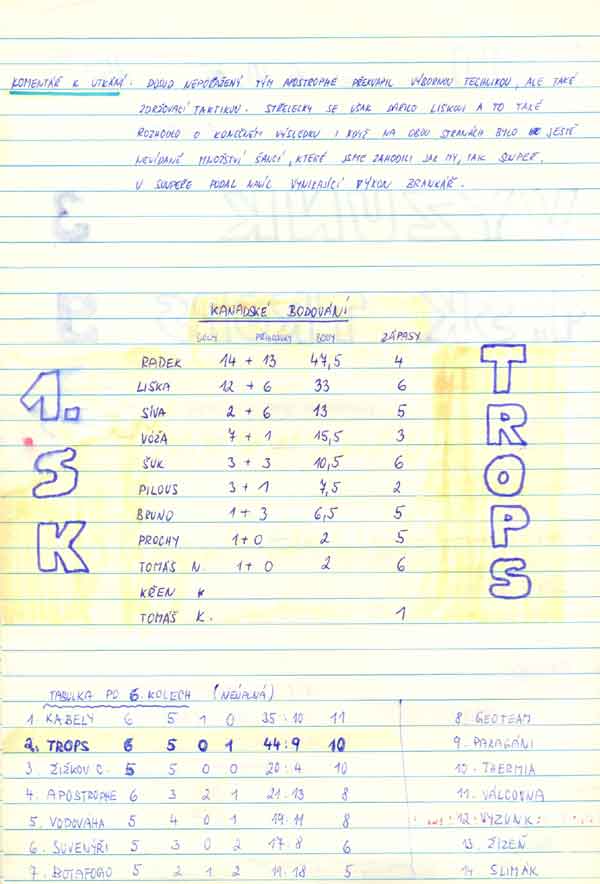 KOMENTÁŘ K UTKÁNÍ: DOSUD NEPORAŽENÝ TÝM APOSTROPHE PŘEKVAPIL VÝBORNOU TECHNIKOU, ALE TAKÉ
ZDRŽOVACÍ TAKTIKOU. STŘELECKY SE VŠAK DAŘILO LIŠKOVI A TO TAKÉ
ROZHODLO O KONEČNÉM VÝSLEDKU I KDYŽ NA OBOU STRANÁCH BYLO JEŠTĚ
NEVÍDANÉ MNOŽSTVÍ ŠANCÍ, KTERÉ JSME ZAHODILI JAK MY, TAK SOUPEŘ.
U SOUPEŘE PODAL NAVÍC VYNIKAJÍCÍ VÝKON BRANKÁŘ.
KANADSKÉ BODOVÁNÍ
GÓLY PŘIHRÁVKY BODY ZÁPASY
RADEK 14 + 13 47,5 4
LIŠKA 12 + 6 33 6
SÍVA 2 + 6 13 5
VÓŽA 7 + 1 15,5 3
ŠUK 3 + 3 10,5 6
PILOUS 3 + 1 7,5 2
BRUNO 1 + 3 6,5 5
PROCHY 1 + 0 2 5
TOMÁŠ N. 1 + 0 2 6
KŘEN
TOMÁŠ K. 1
1. SK
TROPS
TABULKA PO 6 KOLECH (NEÚPLNÁ)
1. KABELY 6 5 1 0 35:10 11
2. TROPS 6 5 0 1 44:9 10
3. ŽIŽKOV C. 5 5 0 0 20:4 10
4. APOSTROPHE 6 3 2 1 21:13 8
5. VODOVAHA 5 4 0 1 19:11 8
6. SUVENÝŘI 5 3 0 2 17:8 6
7. BOTAFOGO 5 2 1 2 19:18 5
8. GEOTEAM
9. PARAGÁNI
10. THERMIA
11. VÁLCOVNA
12. VYZUNK
13. ŽÍZEŇ
14. SLIMÁK